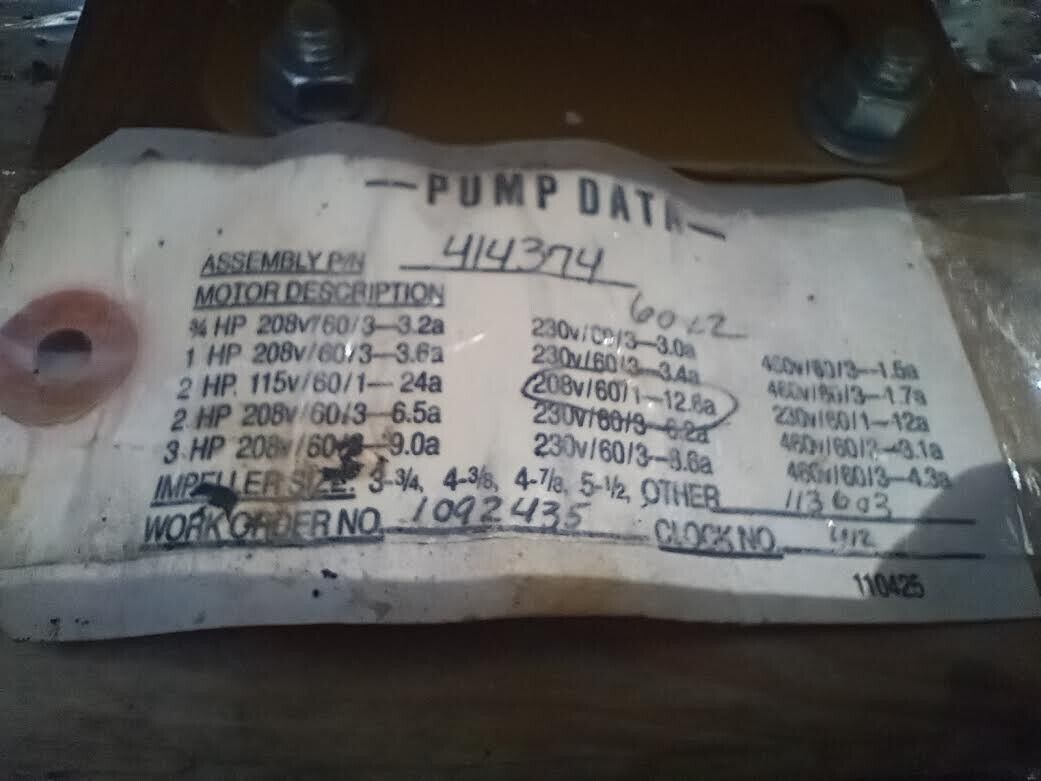 —PUMP DATA—
ASSEMBLY P/N 414374
MOTOR DESCRIPTION
¾ HP 208v/60/3—3.2a 230v/60/3—3.0a 460v/60/3—1.5a
1 HP 208v/60/3—3.6a 230v/60/3—3.4a 460v/60/3—1.7a
2 HP. 115v/60/1—24a 208v/60/1—12.8a 230v/60/1—12a
2 HP 208v/60/3—6.5a 230v/60/3—6.2a 460v/60/3—3.1a
3 HP 208v/60/3—9.0a 230v/60/3—8.6a 460v/60/3—4.3a
IMPELLER SIZE: 3-3/4, 4-3/8, 4-7/8, 5-1/2, OTHER 113603
WORK ORDER NO. 1092435 CLOCK NO.
110425